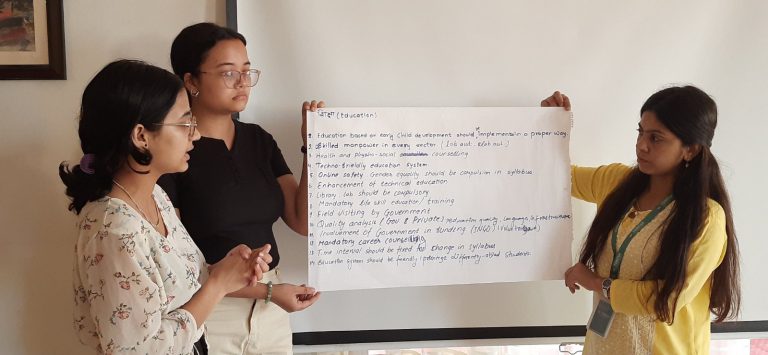 शिक्षा (Education)
1. Education based on early child development should be implement in a proper way.
2. Skilled manpower in every sector (
3. Health and physio-social counselling
4. Techno-friendly education system
5. Online safety Gender equality should be compulsion in syllabus
6. Enhancement of technical education
7. Library, Lab should be compulsory
8. Mandatory life skill education/ training
9. Field visiting by Government
10. Quality analysis (Gov & Private) quality, language, infrastructure
11. Involvement of Government in funding (INGO)
12. Mandatory career counselling
13. Time interval should be fixed for change in syllabus
14. Education system should be friendly differently-abled students.